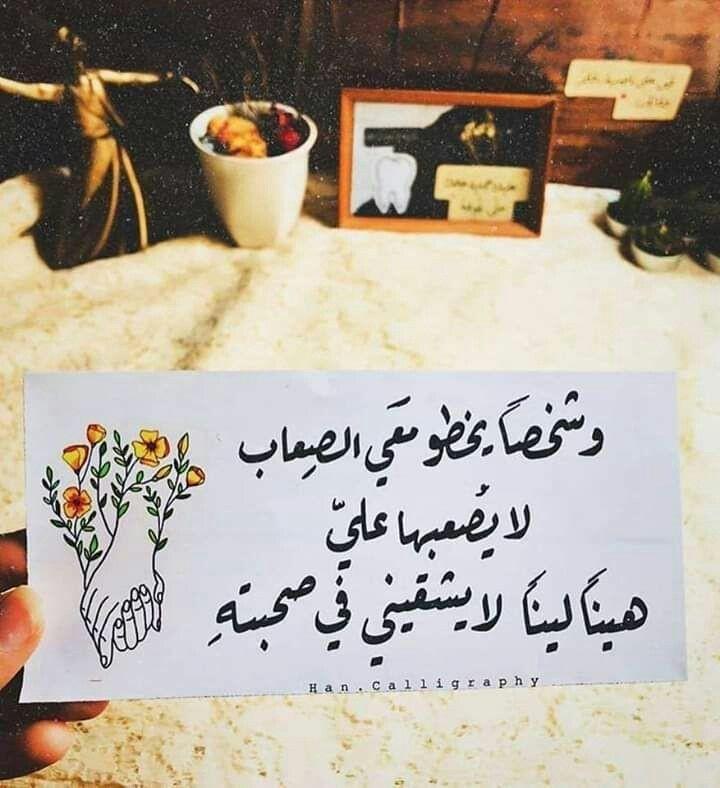 وشخصاً يخطو معَي الصِعاب
لا يُصعبها عليّ
هيناً ليناً لا يشقيني في صحبتهِ
Han.Calligraphy